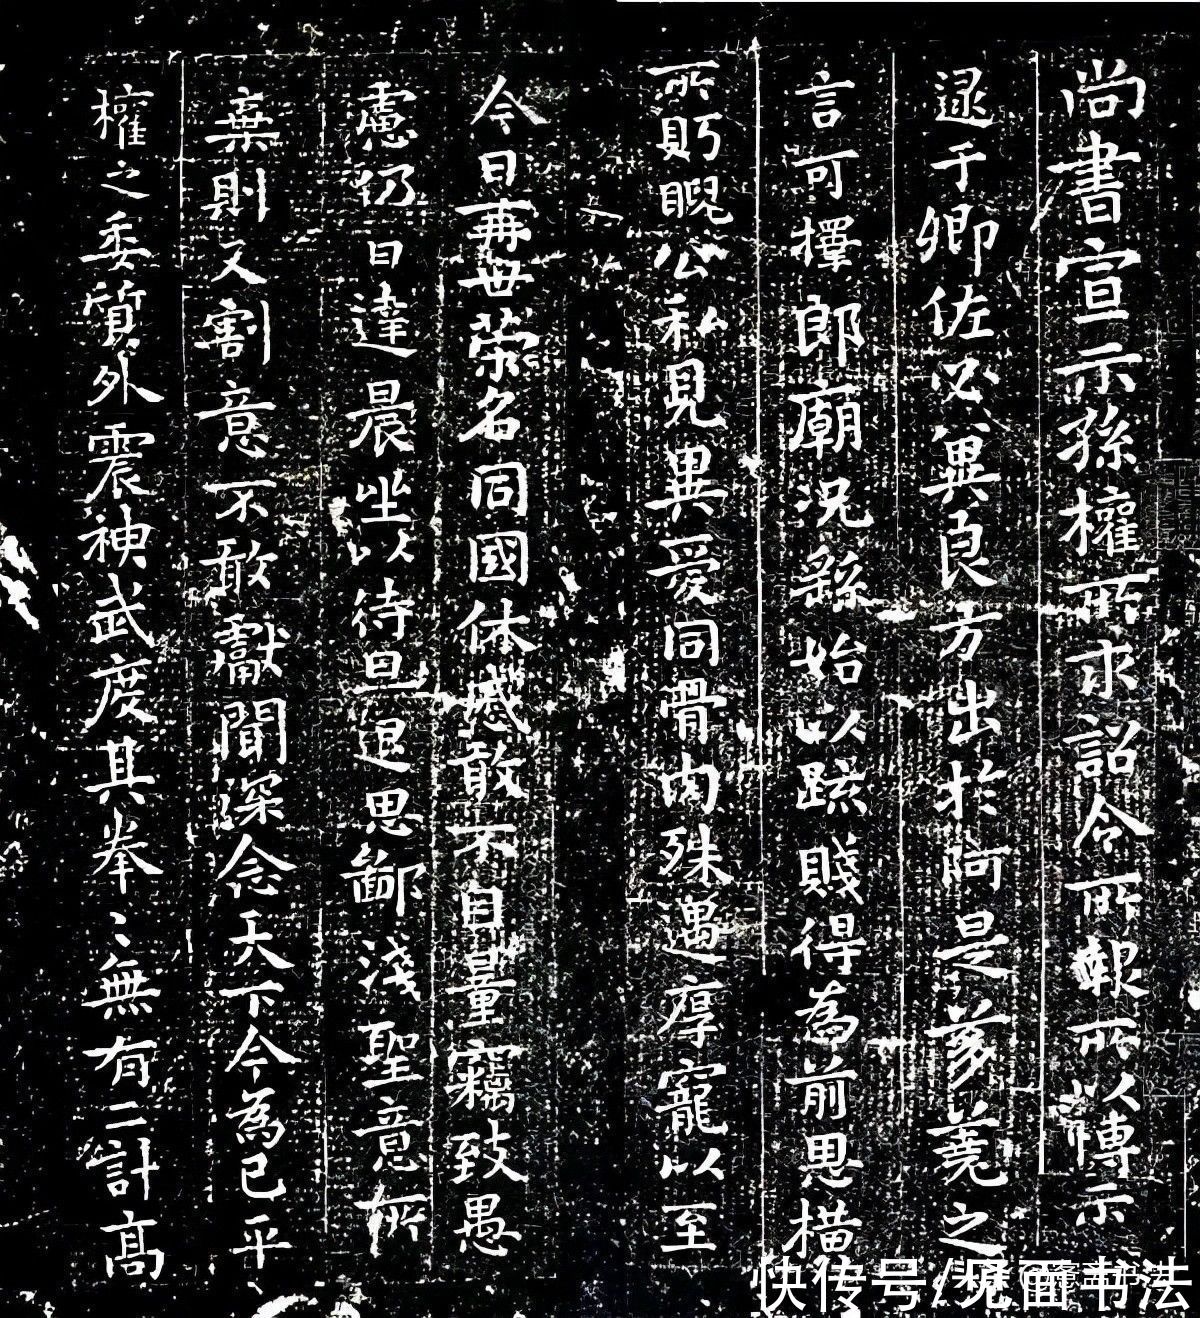 尚書宣示孫權所求詔令所報所以博示
逮于卿佐必冀良方出於阿是芻蕘之
言可擇郎廟況繇始以疏賤得為前思橫
所眄睨公私見異愛同骨肉殊遇厚寵以至
今日再世榮名同國休慼敢不自量竊致愚
慮仍日達晨坐以待旦退思鄙淺聖意所
棄則又割意不敢獻聞深念天下今為已平
權之委質外震神武度其拳〻無有二計高
快传号/见面书法